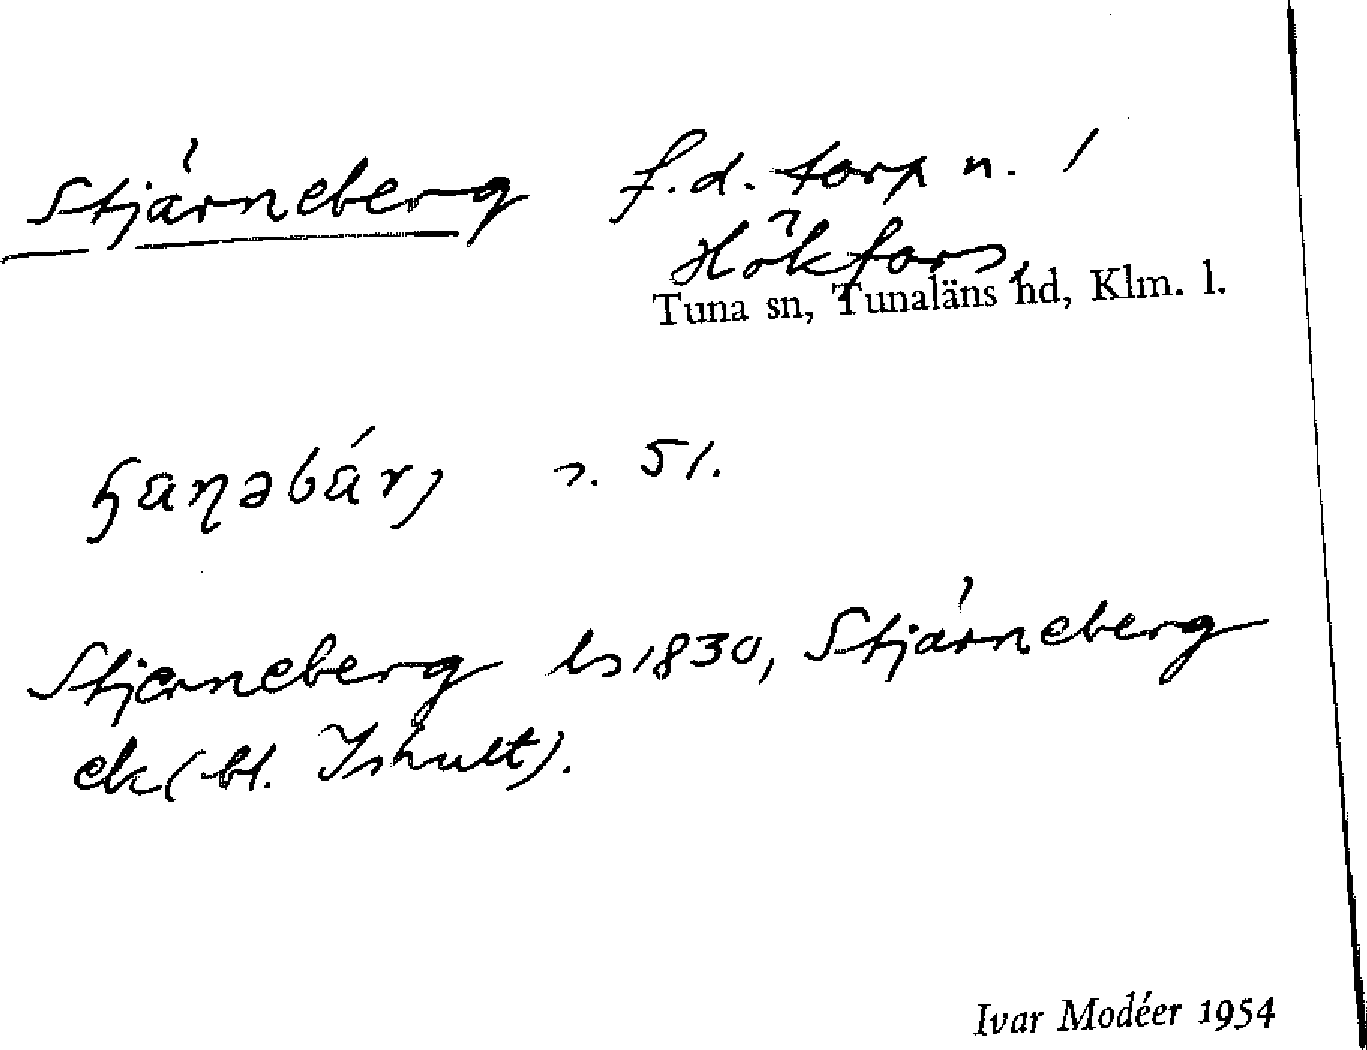 Stjärneberg f.d. torp n. 1
Hökfors,
Tuna sn, Tunaläns hd, Klm. l.
51.
Stjerneberg ls 1830, Stjärneberg
ek (bl. Ishult).
Ivar Modéer 1954